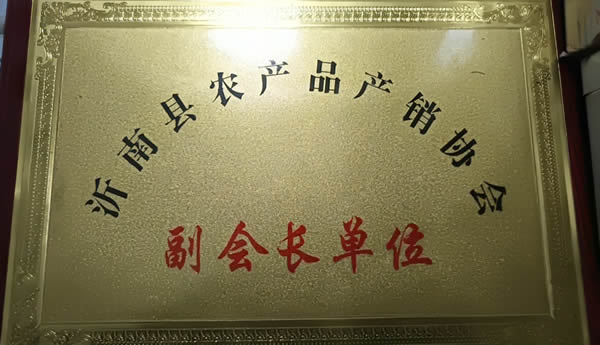 沂南县农产品产销协会
副会长单位